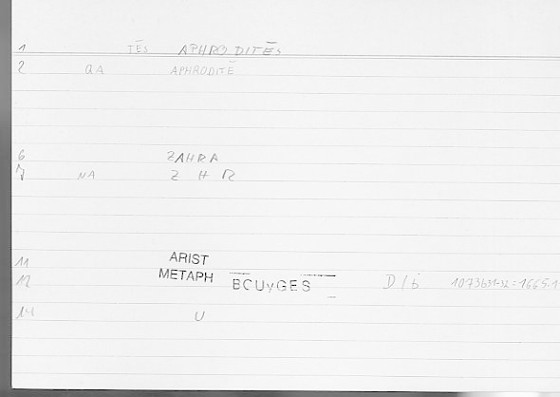 1 TĒS APHRODITĒS
2 QA APHRODITĒ
6 ZAHRA
7 NA Z H R
11 ARIST
12 METAPH BOUyGES D/b 1073b31-32=1665.1
14 U